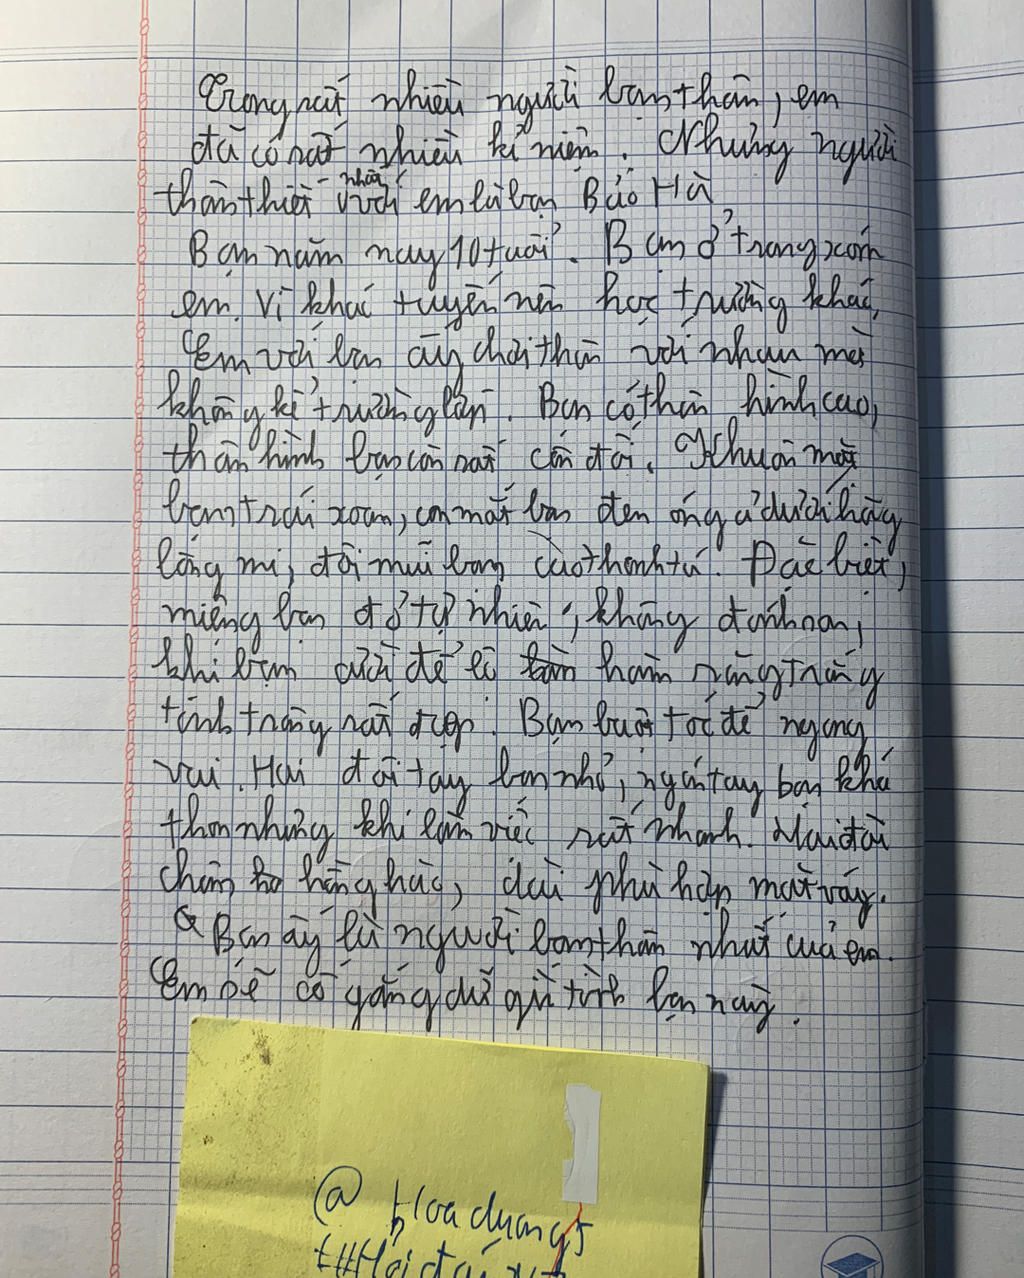 Trong rất nhiều người bạn thân, em
đã có rất nhiều kỉ niệm. Nhưng người
thân thiết nhất với em là bạn Bảo Hà
Bạn năm nay 10 tuổi. Bạn ở trong xóm
em. Vì khác tuyến nên học trường khác,
Em với bạn ấy chơi thân với nhau mà
không kể trường lớp. Bạn có thân hình cao,
thân hình bạn còn rất cân đối. Khuôn mặt
bạn trái xoan, con mắt bạn đen óng ả dưới hàng
lông mi, đôi mũi bạn cao thanh tú. Đặc biệt,
miệng bạn đỏ tự nhiên, không đánh son,
khi bạn cười để lộ hàm răng trắng
tinh trông rất đẹp. Bạn buột tóc để ngang
vai. Hai đôi tay bạn nhỏ, ngón tay bạn khá
thon nhưng khi làm việc rất nhanh. Hai đôi
chân hồng hào, dài phù hợp mặt váy.
Bạn ấy là người bạn thân nhất của em.
Em sẽ cố gắng dữ gìn tình bạn này.
@Hoa dương 5